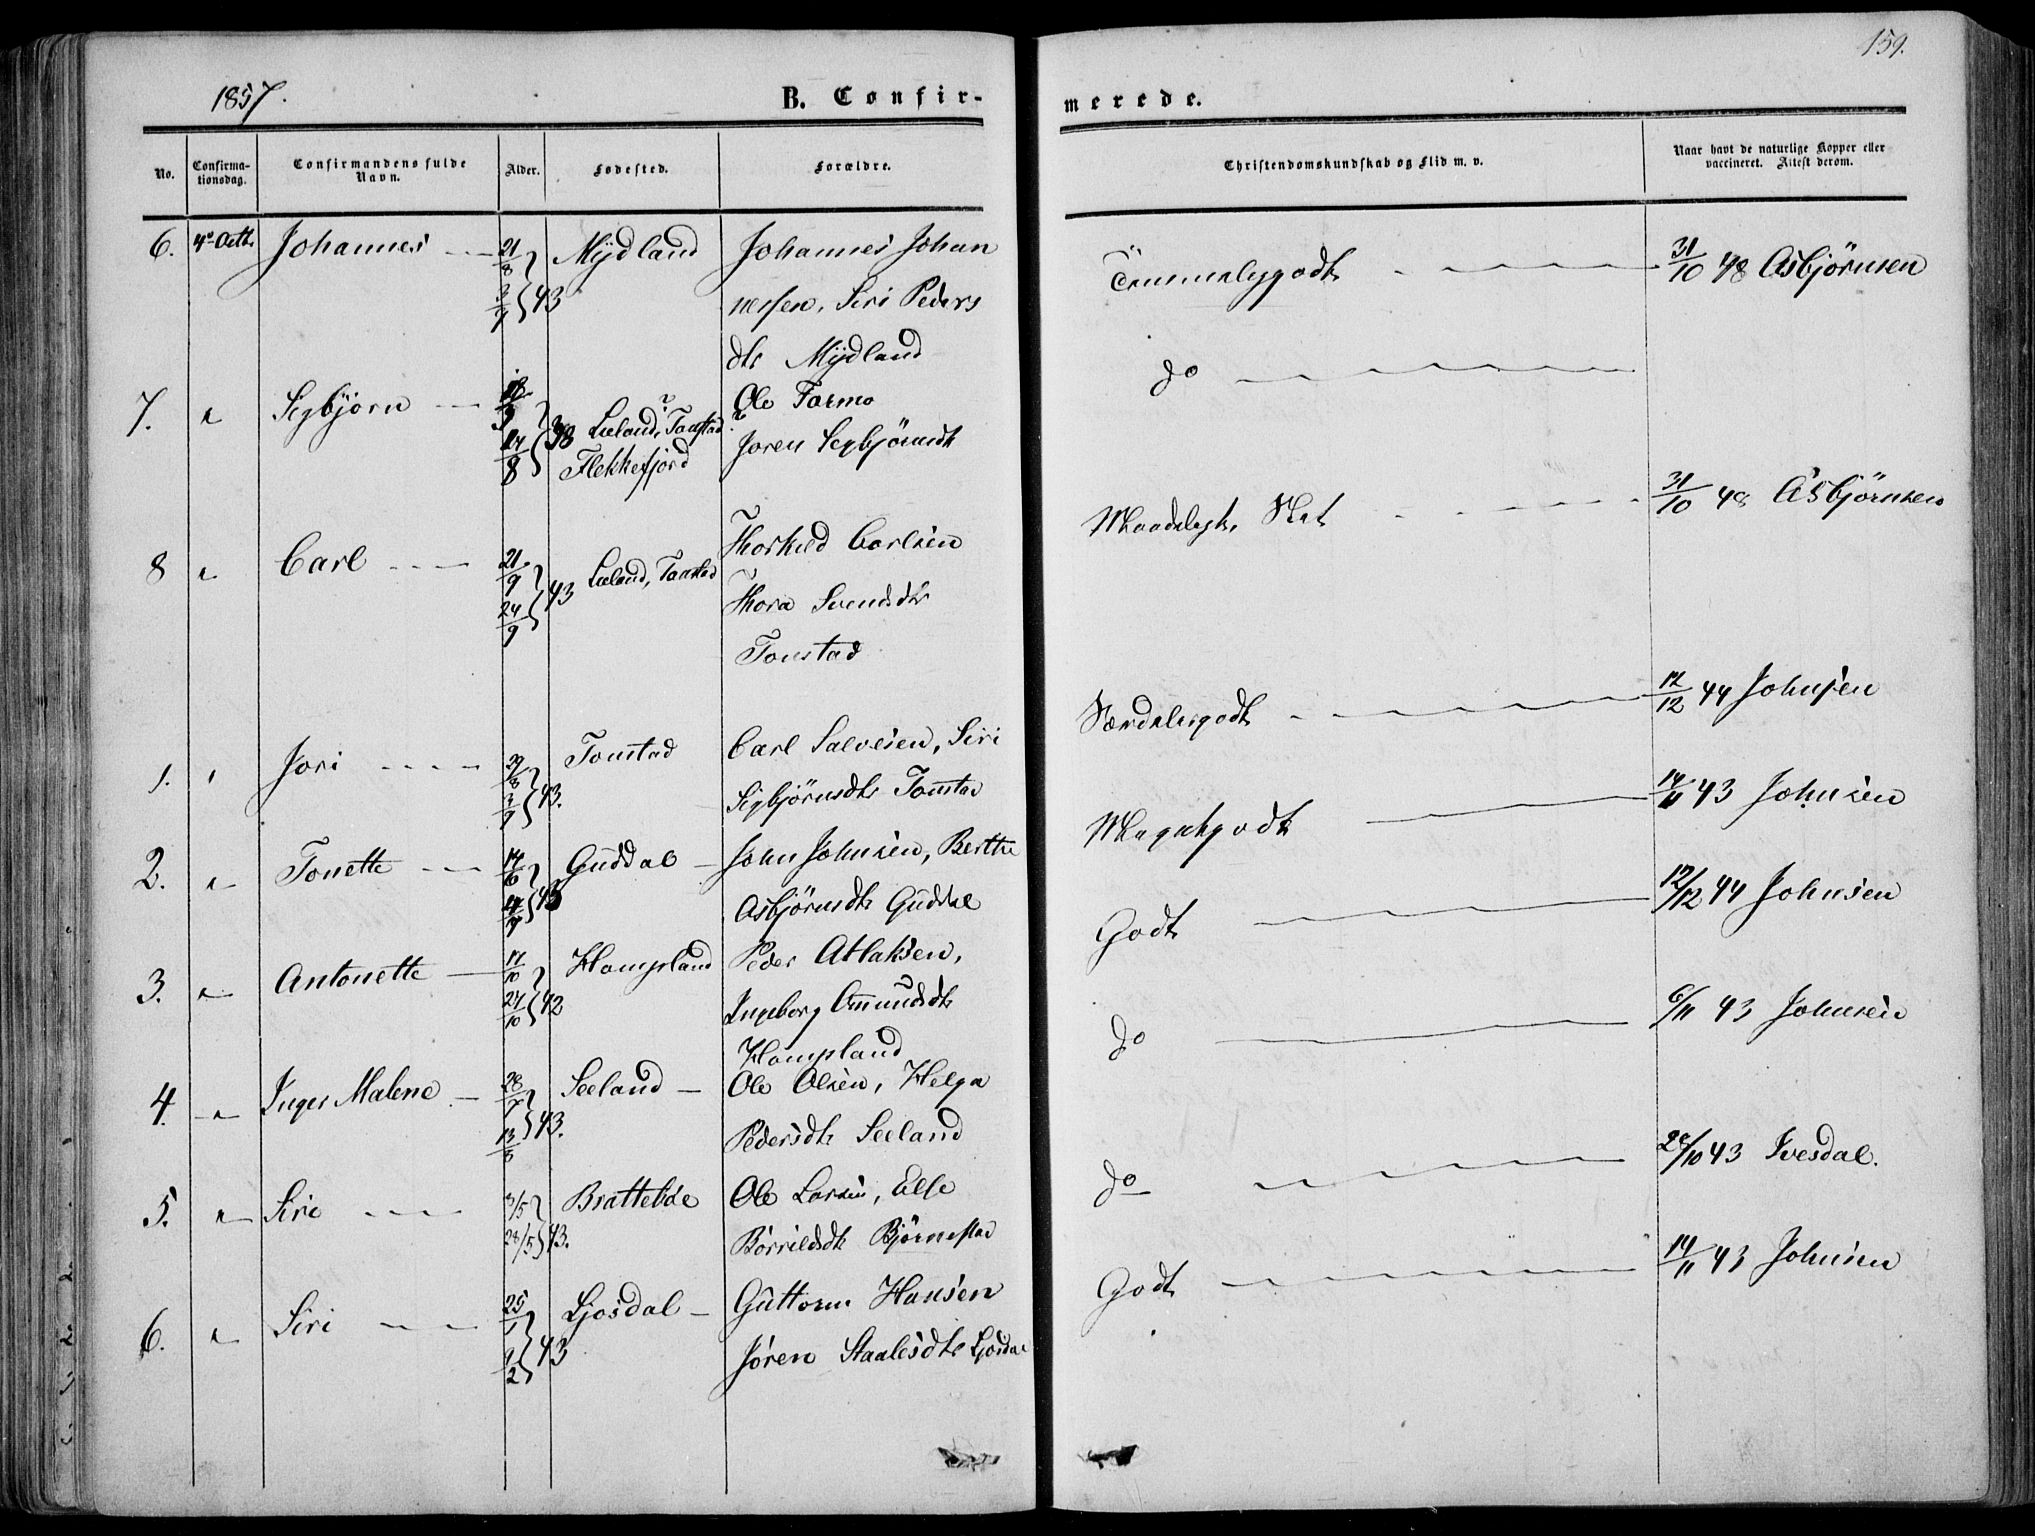 159.
1857.
B. Confir-
merede.
No.
Confirma-
tionsdag.
Confirmandens fulde
Navn.
Alder.
Fødested.
Forældre.
Christendomskundskab og Flid m. v.
Naar havt de naturlige Kopper eller
vaccineret. Attest derom.
6. 4de Octbr Johannes 21/8 3/9 43 Mydland Johannes Johan
nessen, Siri Peders
dtr Mydland
Temmeliggodt 31/10 48 Asbjørnsen
7. " Sigbjørn 38 Lieland, Tonstad? Ole Tarmo
24/8 Flekkefjord Joren Sigbjørnsdtr
do
8 " Carl 21/9 24/9 43 Lieland, Tonstad Thorkild Carlsen
Thora Svendsdtr
Tonstad
Maadeligt, Slet 31/10 48 Asbjørnsen
1. " Jori 43. Tonstad Carl Salvesen, Siri
Sigbjørnsdtr Tonstad
Særdelesgodt 12/12 44 Johnsen
2. " Tonette 43 Guddal John Johnsen, Berthe
Asbjørnsdtr Guddal
Megetgodt 14/11 43 Johnsen
3. " Antonette 17/10 27/10 42 Hompland Peder Atlaksen,
Ingeborg Omundsdtr
Hompland
Godt 12/12 44 Johnsen
4. " Inger Malene 28/7 13/8 43. Seeland Ole Olsen, Helga
Pedersdtr Seeland
do 6/11 43 Johnsen
5. " Siri 3/5 28/5 43. Brattebøe Ole Larsen, Else
Børrildsdtr Bjørnestad
do 28/10 43 Ivesdal.
6. " Siri 25/1 9/2 43 Ljosdal Guttorm Hansen
Jøren Staalesdtr Ljosdal
Godt 14/11 43 Johnsen